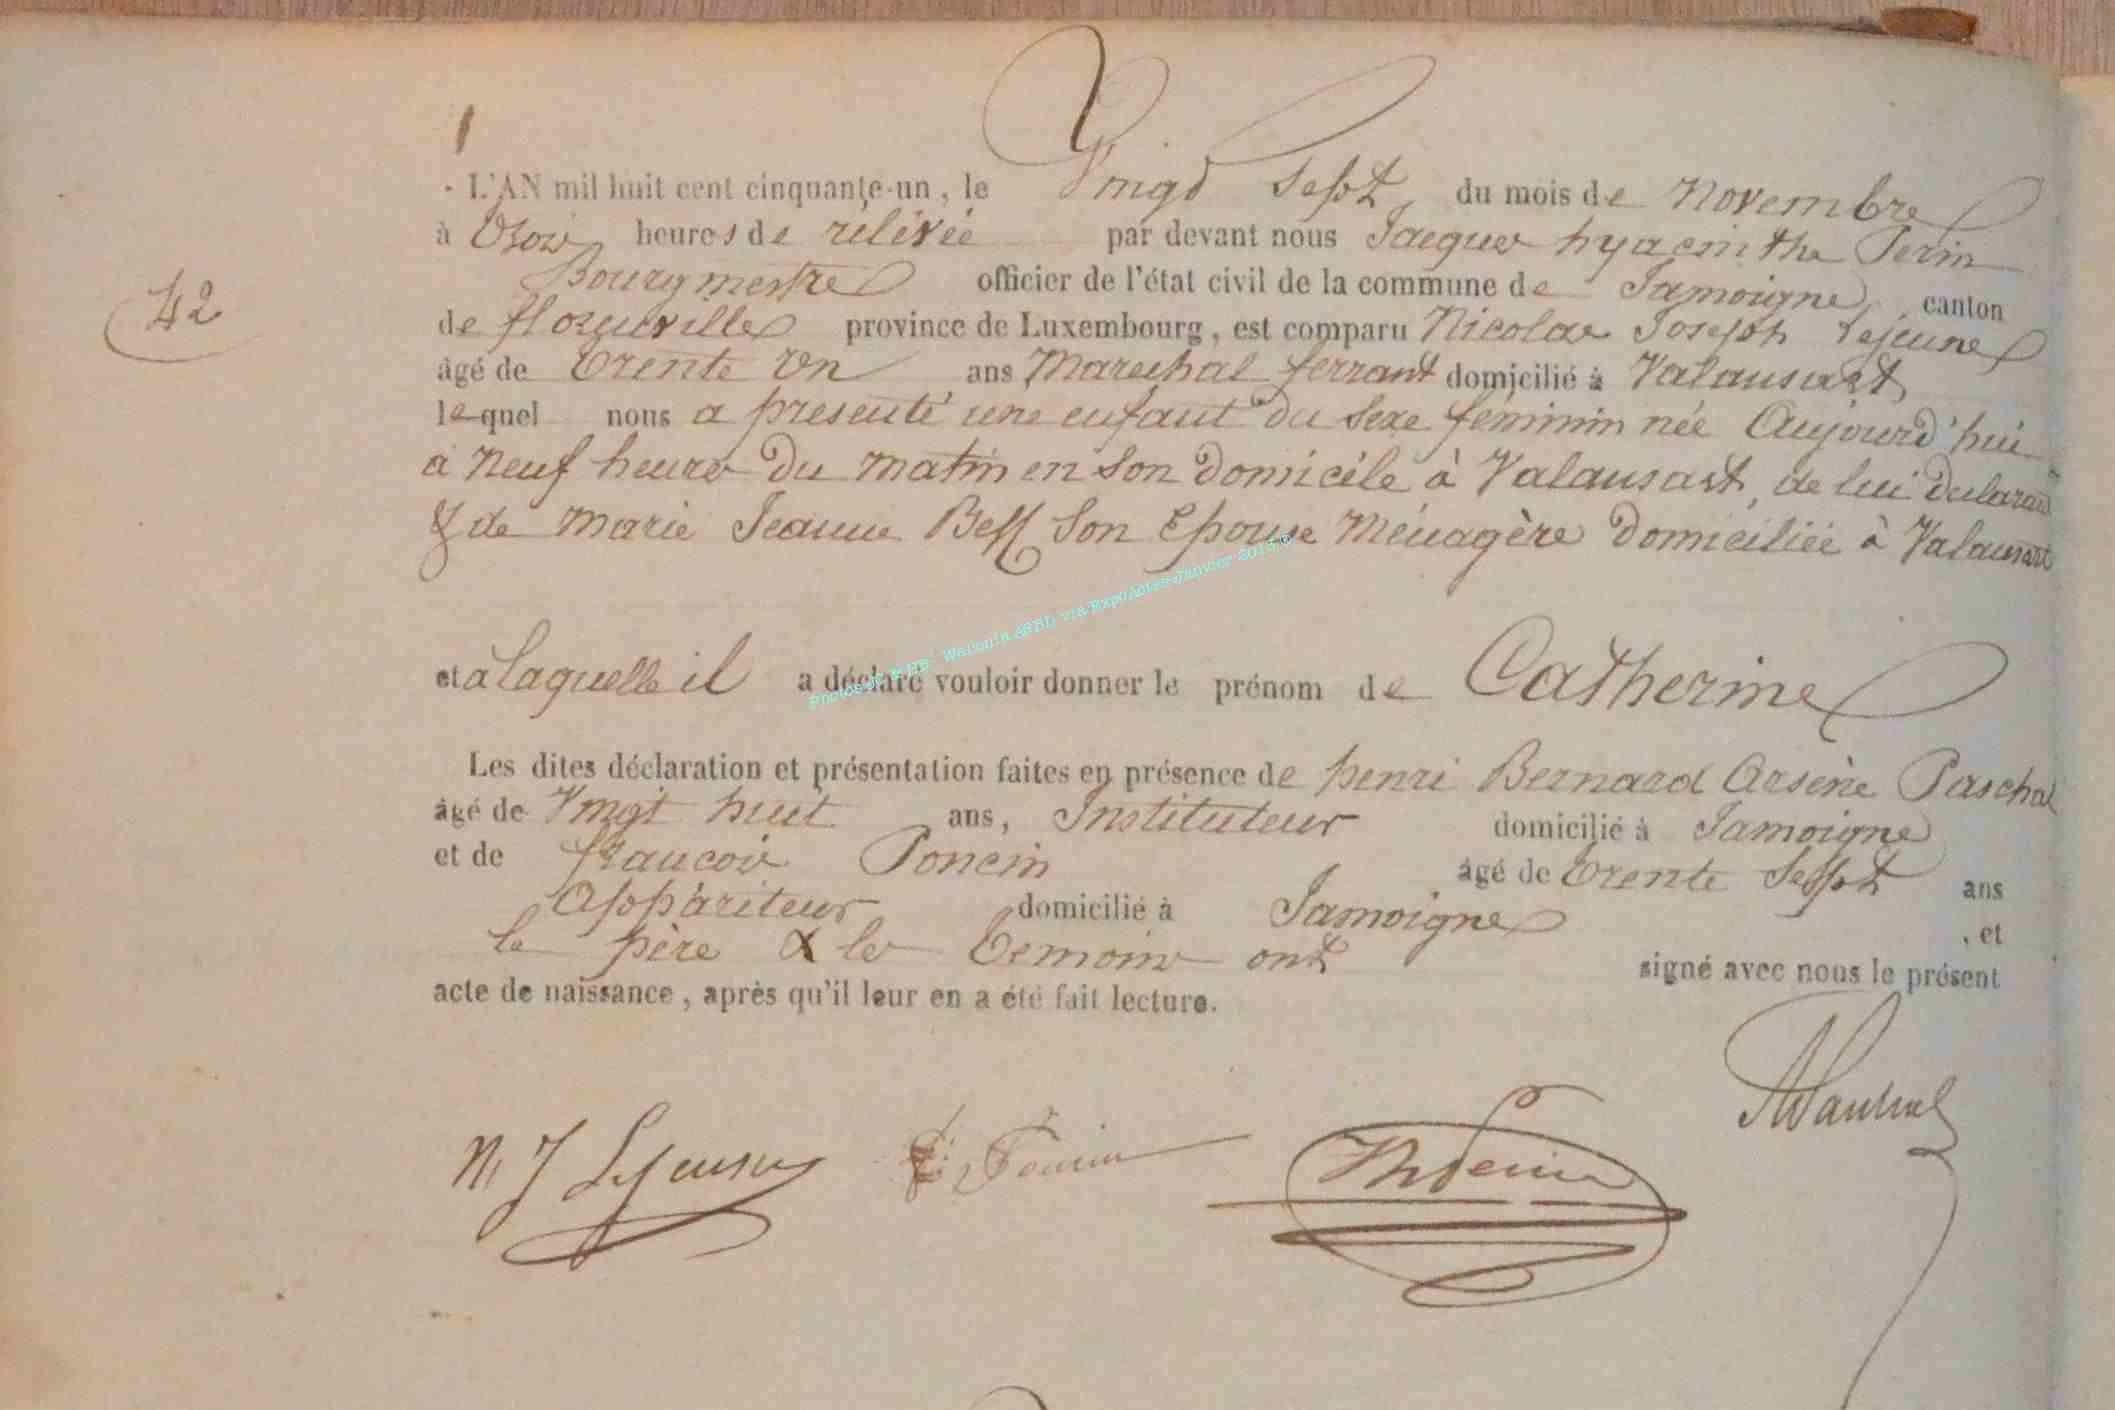 42
L'AN mil huit cent cinquante-un, le Vingt Sept du mois de Novembre
à Trois heures de rélévée par devant nous Jacques hyacinthe Perin
Bourgmestre officier de l'état civil de la commune de Jamoigne canton
de florenville province de Luxembourg, est comparu Nicolas Joseph Lejeune
âgé de Trente Un ans Marechal ferrant domicilié à Valansart
lequel nous a presenté une enfant du Sexe féminin née Aujourd'hui
à Neuf heures du matin en Son domicile à Valansart, de lui déclarant
& de Marie Jeanne Son Epouse Ménagère domiciliée à Valansart
et a laquelle il a déclaré vouloir donner le prénom de Catherine
Les dites déclaration et présentation faites en présence de henri Bernard Arsène Paschal
âgé de Vingt huit ans, Instituteur domicilié à Jamoigne
et de francois Poncin âgé de Trente Sept ans
Appariteur domicilié à Jamoigne, et
le père & les Temoins ont signé avec nous le présent
acte de naissance, après qu'il leur en a été fait lecture.
N J Lejeune Poncin JhPerin Paschal